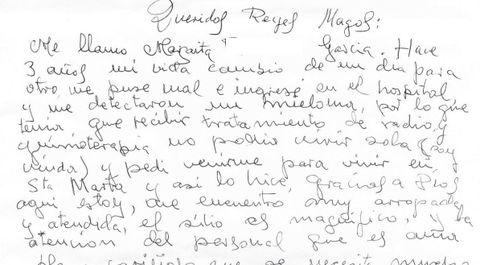 Queridos Reyes Magos:
Me llamo Margarita García. Hace
3 años mi vida cambio de un día para
otro, me puse mal e ingresé en el hospital
y me detectaron un mieloma, por lo que
tenía que recibir tratamiento de radio y
quimioterapia, no podia vivir sola (soy
viuda) y pedi venirme para vivir en
Sta Marta y así lo hice, gracias a Dios
aquí estoy, me encuentro muy arropada
y atendida, el sitio es magnífico, y la
atención del personal que es
que se necesita